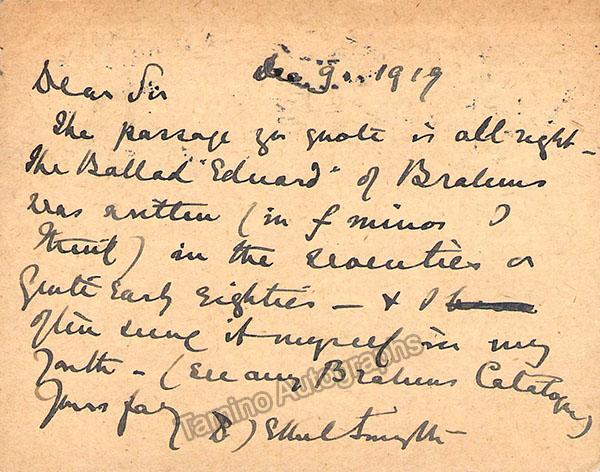 Dec 9. 1919
Dear Sir
The passage you quote is all right –
The Ballad "Edward" of Brahms
was written (in f minor I
think) in the seventies or
quite early eighties – & I
often sung it myself in my
youth – (See any Brahms Catalogue)
Yours faly
(D) Ethel Smyth
Tamino Autographs